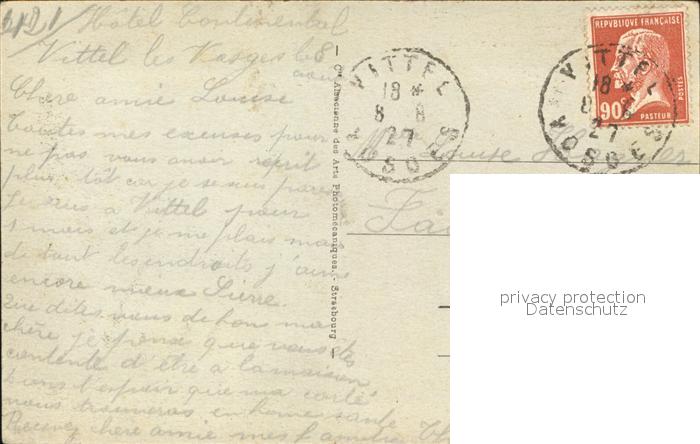 Hôtel Continental
Vittel les Vosges le 8
août
Chère amie Louise
Toutes mes excuses pour
ne pas vous avoir écrit
plus tôt car je
Je suis à Vittel pour
1 mois et je me plais mais
de tout les endroits j'aime
encore mieux Sierre.
Que dites vous de bon ma
chère, je pense que vous êtes
contente d'être à la maison
dans l'espoir que ma carte
vous trouveras en bonne santé
Recevez chère amie mes
Cie Alsacienne des Arts Photomécaniques,- Strasbourg
VITTEL
18 *
8 8
27
VOSGES
VITTEL
18 *
8 8
27
VOSGES
REPVBLIQUE FRANÇAISE
90c
PASTEUR
Louise
privacy protection
Datenschutz